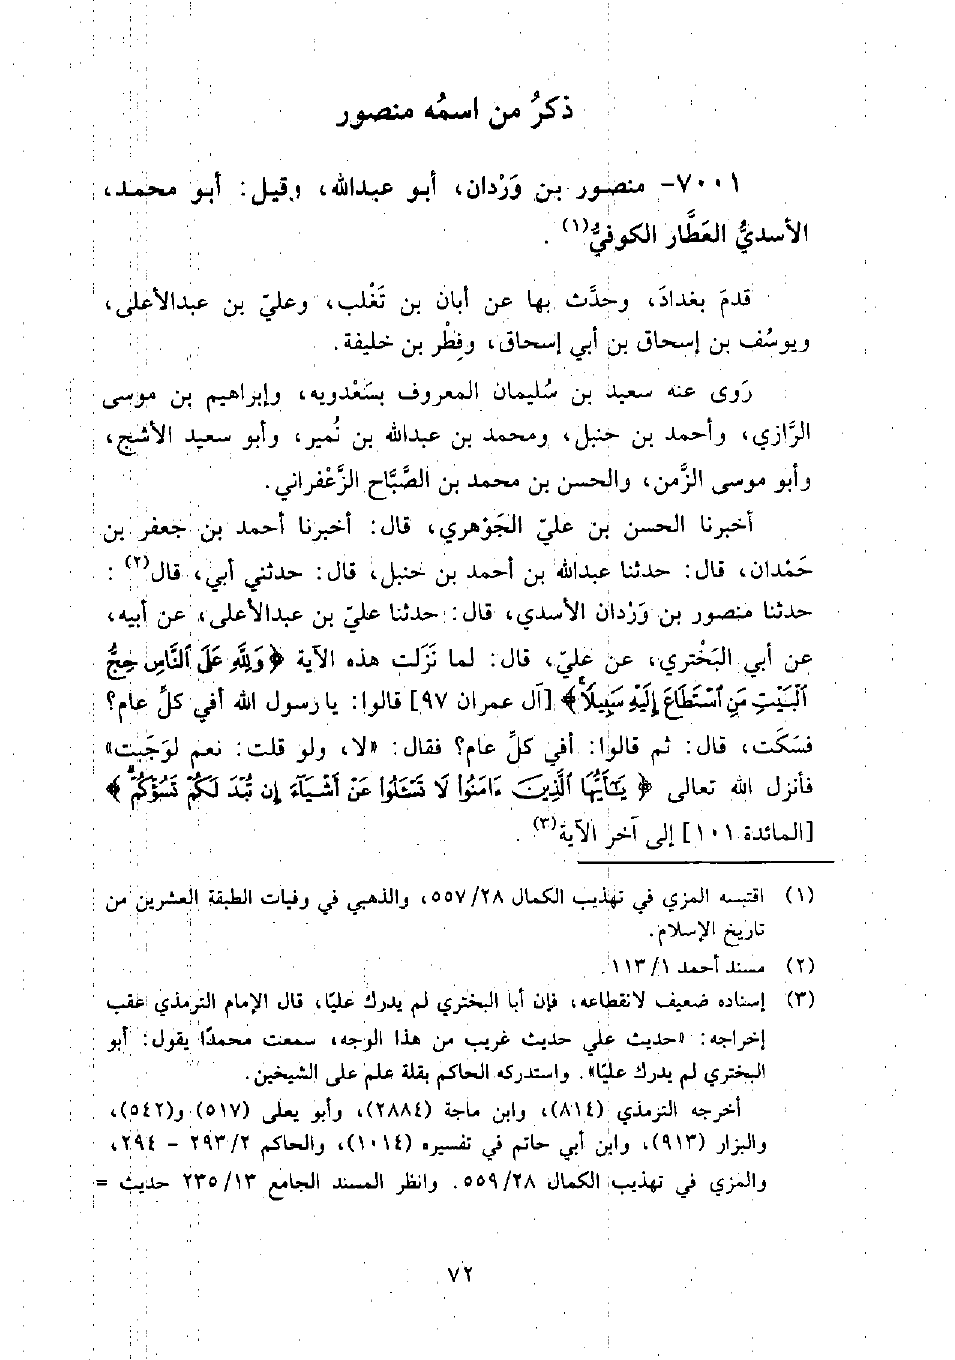 ذكرُ من اسمُه منصور
٧٠٠١- منصور بن وَرْدان، أبو عبدالله، وقيل: أبو محمد،
الأسديُّ العَطَّار الكوفيُّ(١) .
قدمَ بغدادَ، وحدَّث بها عن أبان بن تَغْلب، وعليّ بن عبدالأعلى،
ويوسُف بن إسحاق بن أبي إسحاق، وفِطْر بن خليفة.
رَوى عنه سعيد بن سُليمان المعروف بسَعْدويه، وإبراهيم بن موسى
الرَّازي، وأحمد بن حنبل، ومحمد بن عبدالله بن نُمير، وأبو سعيد الأشج،
وأبو موسى الزَّمن، والحسن بن محمد بن الصَّبَّاح الزَّعْفراني.
أخبرنا الحسن بن عليّ الجَوْهري، قال: أخبرنا أحمد بن جعفر بن
حَمْدان، قال: حدثنا عبدالله بن أحمد بن حنبل، قال: حدثني أبي، قال(٢) :
حدثنا منصور بن وَرْدان الأسدي، قال: حدثنا عليّ بن عبدالأعلى، عن أبيه،
عن أبي البَخْتري، عن عليّ، قال: لما نَزَلت هذه الآية ﴿وَلِلَّهِ عَلَى ٱلنَّاسِ حِجُّ
ٱلْبَيْتِ مَنِ ٱسْتَطَاعَ إِلَيْهِ سَبِيلًا﴾ [آل عمران ٩٧] قالوا: يا رسول الله أفي كلِّ عام؟
فسَكَت، قال: ثم قالوا: أفي كلِّ عام؟ فقال: «لا، ولو قلت: نعم لوَجَبت»
فأنزل الله تعالى ﴿ يَٰٓأَيُّهَا ٱلَّذِينَ ءَامَنُوا۟ لَا تَسْـَٔلُوا۟ عَنْ أَشْيَآءَ إِن تُبْدَ لَكُمْ تَسُؤْكُمْ ﴾
[المائدة ١٠١] إلى آخر الآية(٣) .
(١) اقتبسه المزي في تهذيب الكمال ٢٨/ ٥٥٧، والذهبي في وفيات الطبقة العشرين من
تاريخ الإسلام.
(٢) مسند أحمد ١/ ١١٣.
(٣) إسناده ضعيف لانقطاعه، فإن أبا البختري لم يدرك عليًا، قال الإمام الترمذي عقب
إخراجه: «حديث علي حديث غريب من هذا الوجه، سمعت محمدًا يقول: أبو
البختري لم يدرك عليًا». واستدركه الحاكم بقلة علم على الشيخين.
أخرجه الترمذي (٨١٤)، وابن ماجة (٢٨٨٤)، وأبو يعلى (٥١٧) و(٥٤٢)،
والبزار (٩١٣)، وابن أبي حاتم في تفسيره (١٠١٤)، والحاكم ٢/ ٢٩٣ - ٢٩٤،
والمزي في تهذيب الكمال ٢٨/ ٥٥٩. وانظر المسند الجامع ١٣/ ٢٣٥ حديث =
٧٢